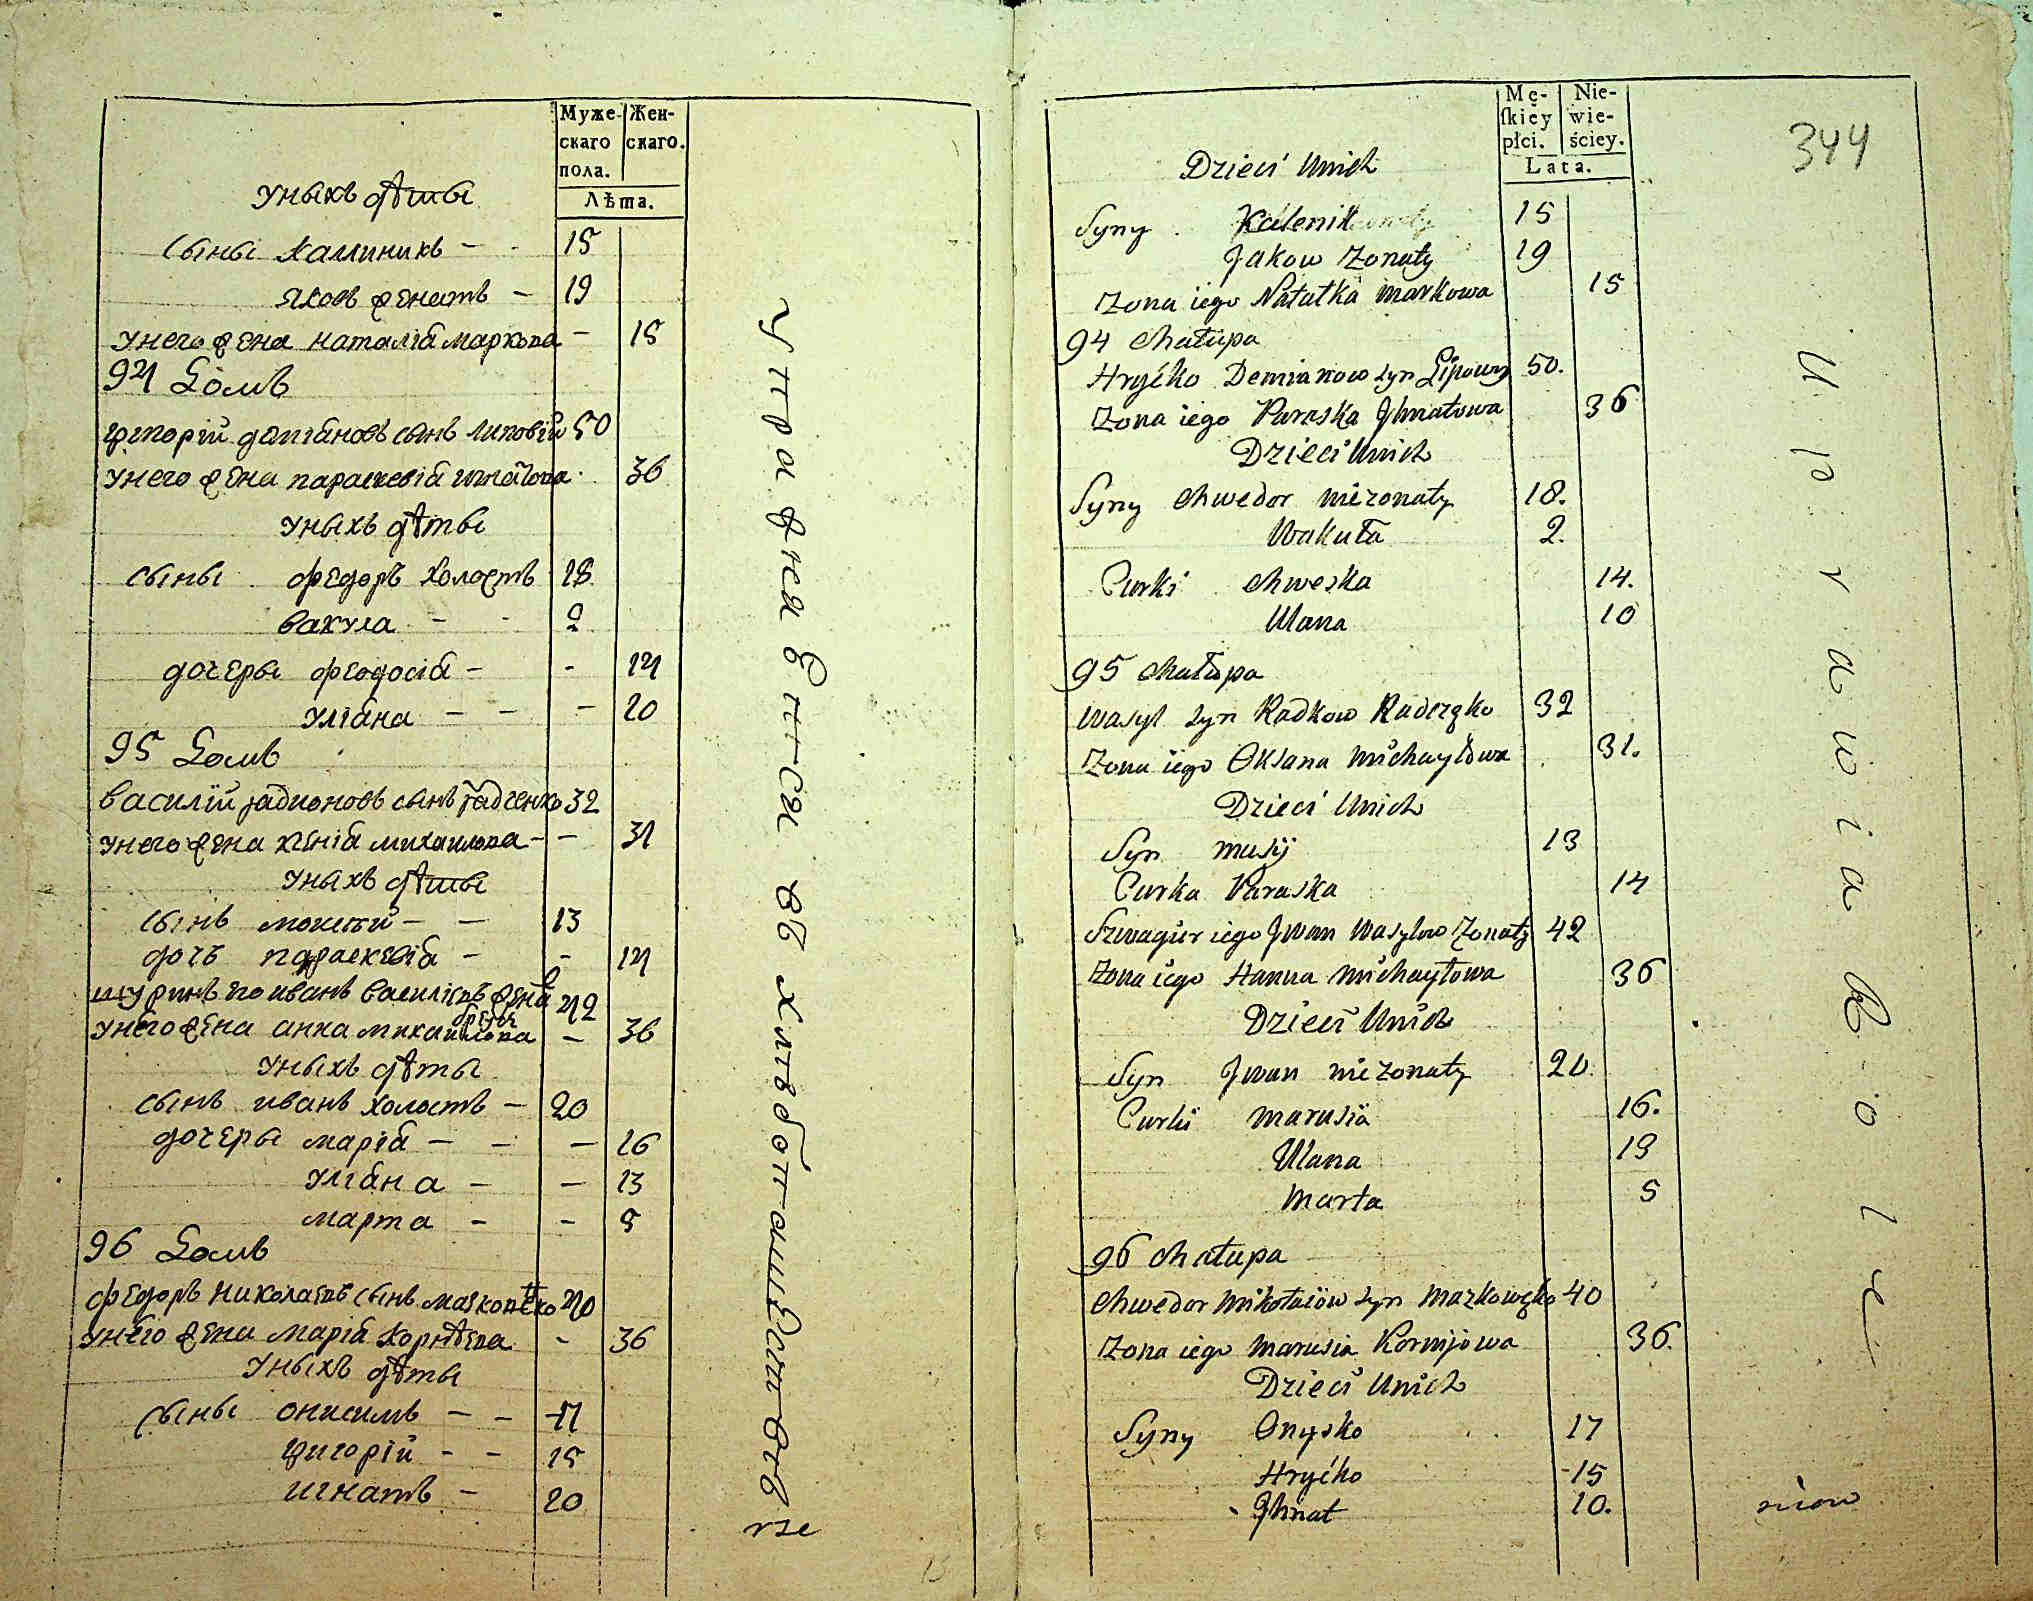 Муже-
скаго
пола.
Жен-
скаго.
Лѣта.
Уныхъ дѣты
сыны Калиникъ - - 15
Яковъ женатъ - 19
Унего жена наталіа маркова - 15
94 Домъ
григорій даміановъ сынъ липовій 50
Унего жена параскевіа игнатова 36
Уныхъ дѣты
сыны федоръ холостъ 18
вакула - - 2
дочеры феодосіа - - 14
уліана - - - 10
95 Домъ
василій радионовъ сынъ радченко 32
Унего жена ксеніа михаилова - - 31
Уныхъ дѣты
сынъ моисей - - 13
дочъ параскевіа - - 14
шуринъ его иванъ василіевъ жена 42
Унего жена анна михаилова - 36
Уныхъ дѣты
сынъ иванъ холостъ - 20
дочеры маріа - - - 16
уліана - - 13
марта - - 5
96 Домъ
федоръ николаевъ сынъ 40
Унего жена маріа корнѣева - 36
Уныхъ дѣты
сыны онисимъ - - 17
григорій - - 15
игнатъ - 10
Упражняется въ хлѣбопашествѣ
Mę-
ſkiey
płci.
Nie-
wie-
ściey.
Lata.
344
Dzieci Unich
Syny Kalenik 15
Jakow Zonaty 19
Zona iego Natałka Markowa 15
94 Chałupa
Hryćko Demianow syn Lipowy 50.
Zona iego Paraska Ihnatowa 36
Dzieci Unich
Syny Chwedor niezonaty 18.
Wakuła 2.
Curki Chweska 14.
Ulana 10
95 Chałupa
Wasyl syn Radkow Radczęko 32
Zona iego Oksana Michayłowa 31.
Dzieci Unich
Syn Musij 13
Curka Paraska 14
Szwagier iego Jwan Wasylow Zonaty 42
Zona iego Hanna Michayłowa 36
Dzieci Unich
Syn Jwan niezonaty 20.
Curki Marusia 16.
Ulana 13
Marta 5
96 Chałupa
Chwedor Mikołaiow syn Mazkowęko 40
Zona iego Marusia Kornijowa 36.
Dzieci Unich
Syny Onysko 17
Hryćko 15
Ihnat 10.
Uprawia Role